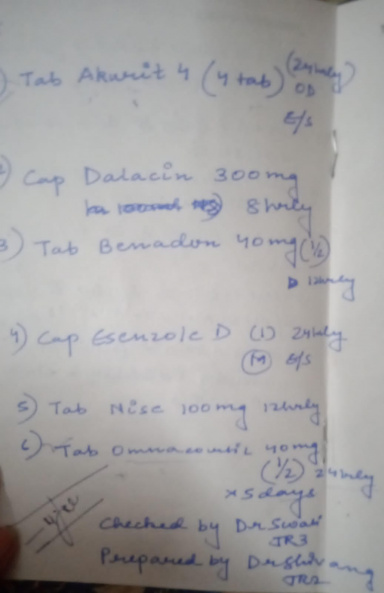 1) Tab Akurit 4 (4 tab) (24hrly)
OD
E/S
2) Cap Dalacin 300mg
8hrly
3) Tab Benadon 40mg (1/2)
12hrly
4) Cap Esenzole D (1) 24hrly
(M) E/S
5) Tab Nise 100mg 12hrly
6) Tab Omnacortil 40mg
(1/2) 24hrly
x 5 days
Checked by Dr Swati
JR3
Prepared by Dr Shivang
JR2